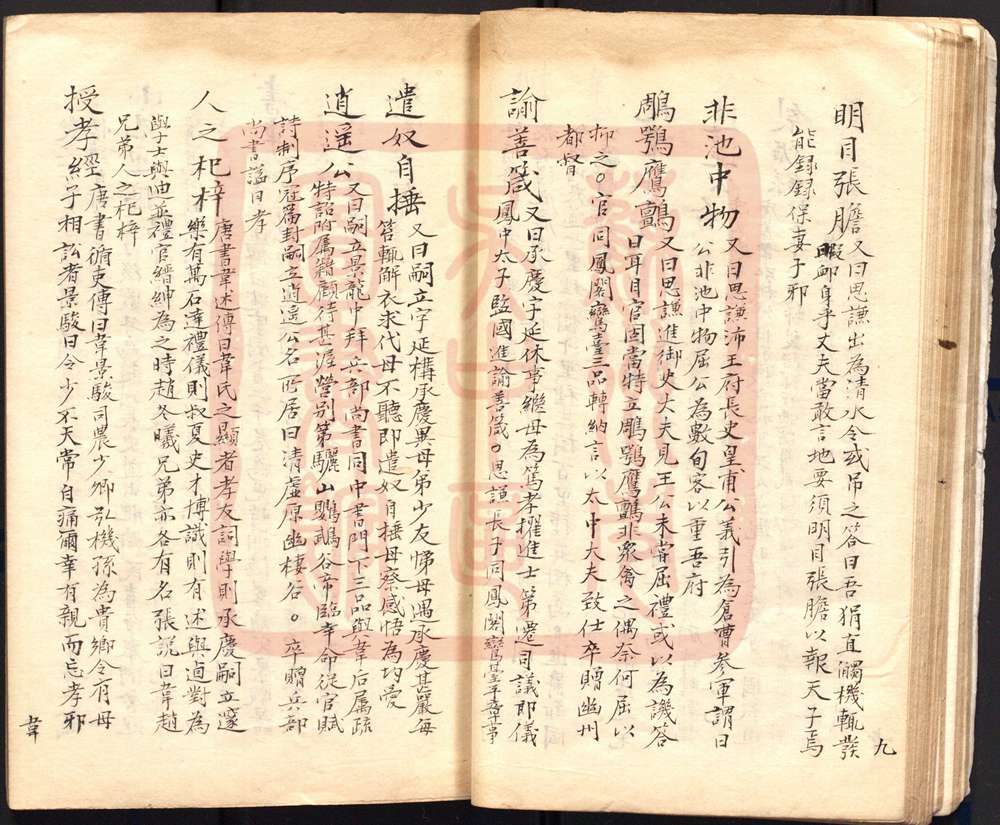 明目張膽又曰思謙出為清水令或吊之答曰吾狷直觸機輒發
暇卹身乎丈夫當敢言地要須明目張膽以報天子焉
能録録保妻子邪
非池中物又曰思謙沛王府長史皇甫公義引為倉曹參軍謂曰
公非池中物屈公為數旬客以重吾府
鵰鶚鷹鸇又曰思謙進御史大夫見王公未嘗屈禮或以為譏答
曰耳目官固當特立鵰鶚鷹鸇非眾禽之偶奈何屈以
狎之○官同鳳閣鸞臺三品轉納言以太中大夫致仕卒贈幽州
都督
諭善箴又曰承慶字延休事繼母為篤孝擢進士第遷司議郎儀
鳳中太子監國進諭善箴○思謙長子同鳳閣鸞臺平章事
遣奴自捶又曰嗣立字延構承慶異母弟少友悌母遇承慶甚嚴每
笞輒解衣求代母不聽即遣奴自捶母察感悟為均愛
逍遥公又曰嗣立景龍中拜兵部尚書同中書門下三品與韋后屬疏
特詔附屬籍顧待甚渥營别第驪山鸚鵡谷帝臨幸命從官賦
詩制序冠篇封嗣立逍遥公名所居曰清虚原幽棲谷○卒贈兵部
尚書謚曰孝
人之杞梓唐書韋述傳曰韋氏之顯者孝友詞學則承慶嗣立邃
樂有萬石達禮儀則叔夏史才博識則有述與逌對為
學士與迪並禮官縉紳為之時趙冬曦兄弟亦各有名張說曰韋趙
兄弟人之杞梓
授孝經唐書循吏傳曰韋景駿司農少卿弘機孫為貴鄉令有母
子相訟者景駿曰令少不天常自痛爾幸有親而忘孝邪
九
韋